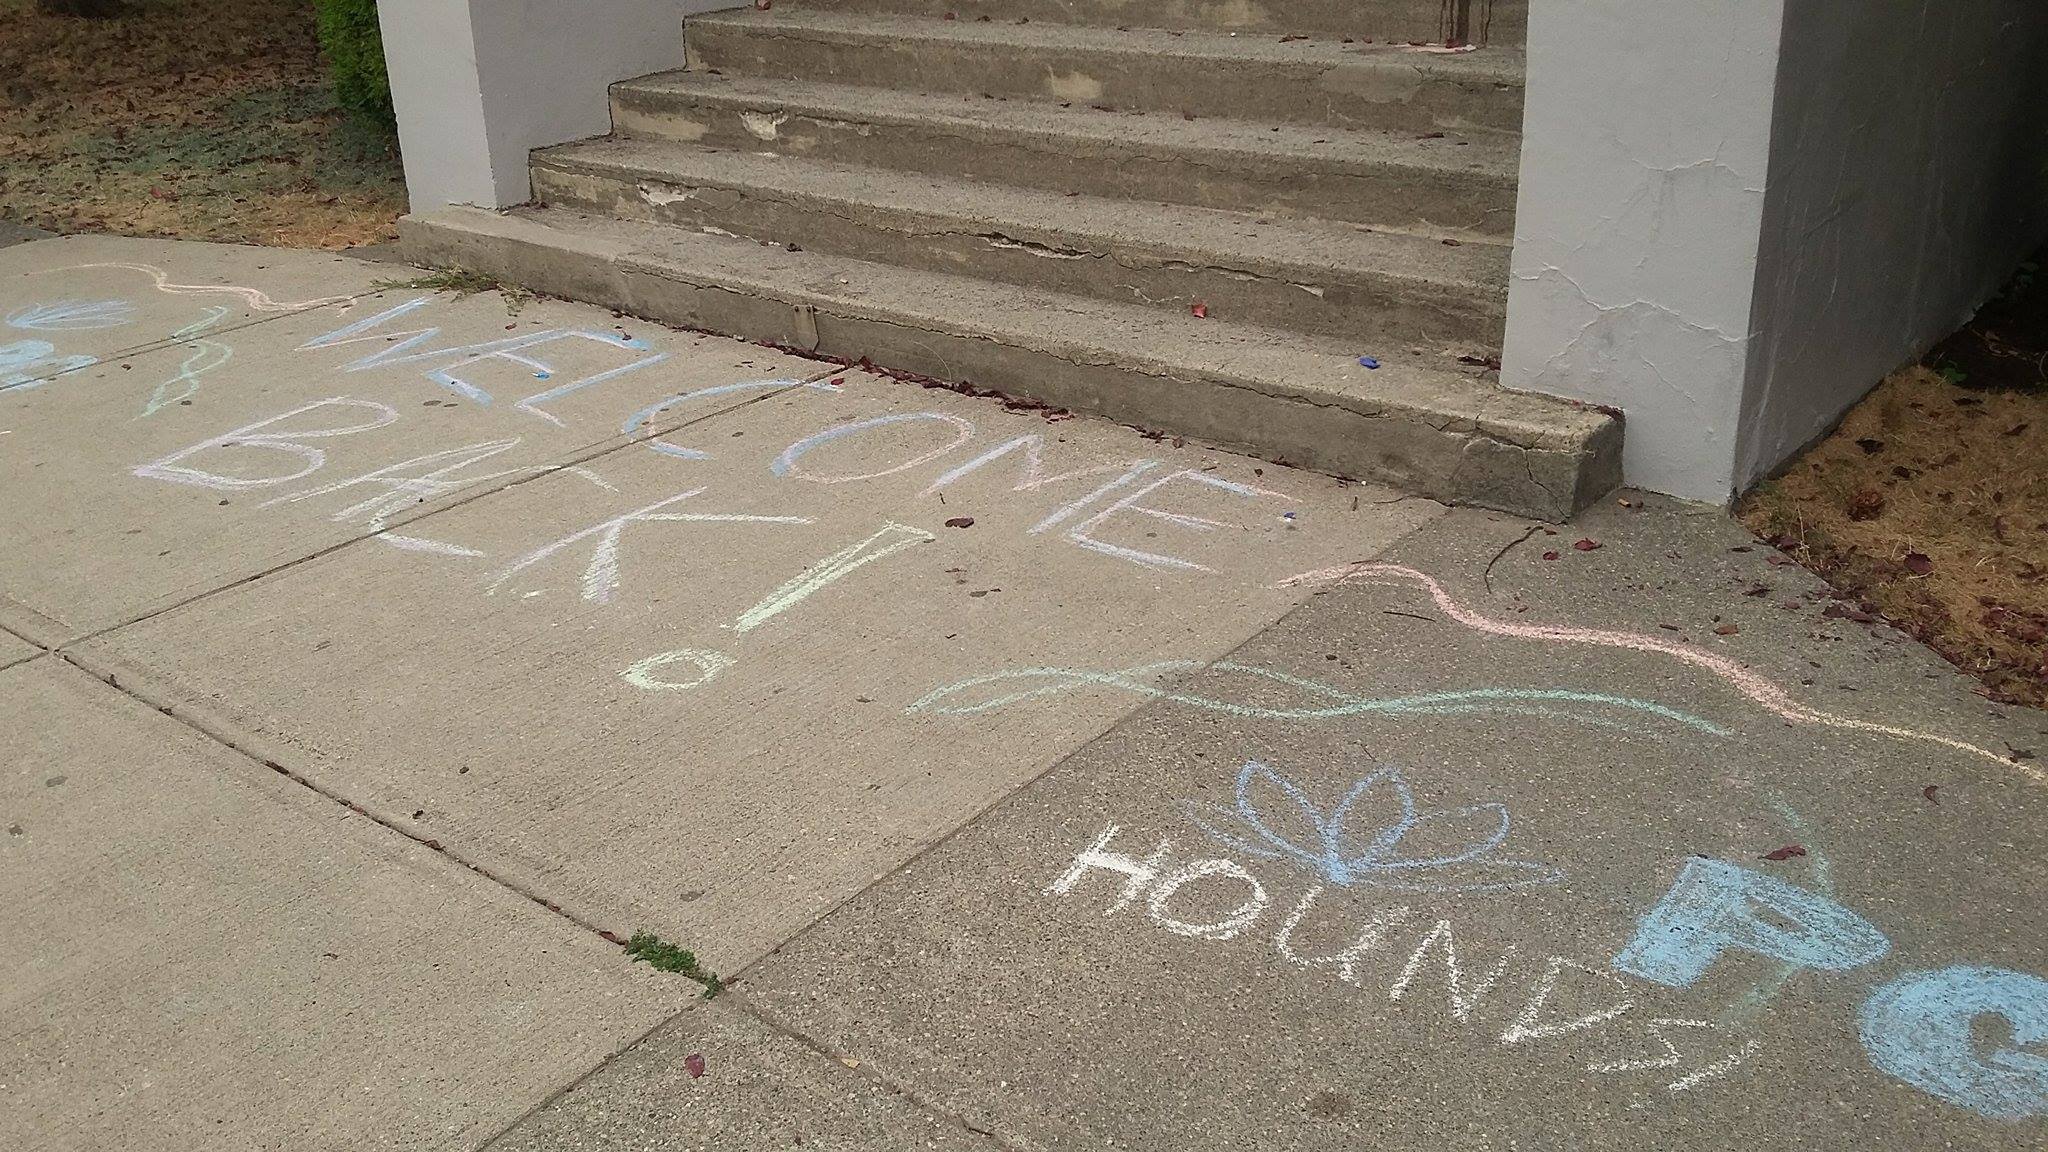 WELCOME
BACK!
HOUNDS
PG